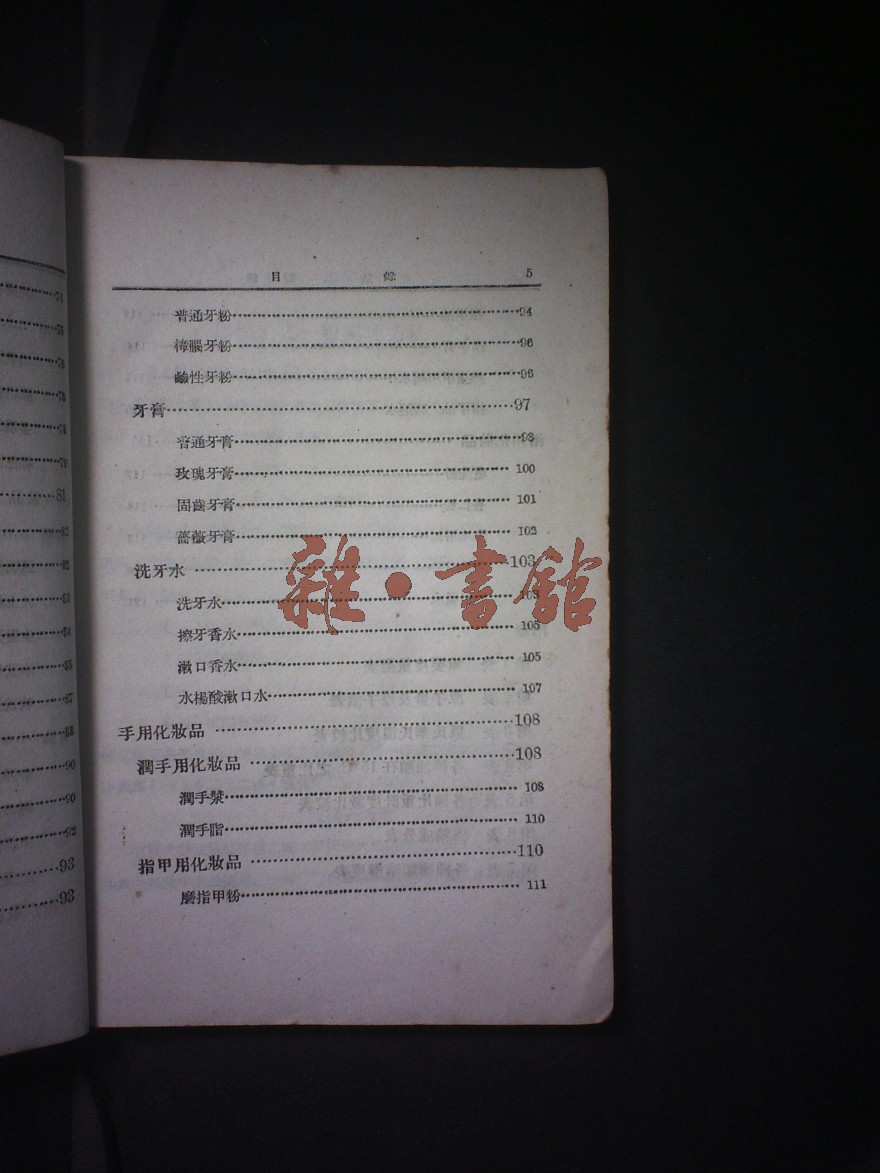 目 錄 5
普通牙粉 94
樟腦牙粉 96
鹼性牙粉 96
牙膏 97
普通牙膏 98
玫瑰牙膏 100
固齒牙膏 101
薔薇牙膏 102
洗牙水 103
洗牙水 103
擦牙香水 105
漱口香水 105
水楊酸漱口水 107
手用化妝品 108
潤手用化妝品 108
潤手漿 108
潤手脂 110
指甲用化妝品 110
磨指甲粉 111
雜·書館
74
75
76
78
78
79
81
82
82
83
84
85
87
88
90
90
92
93
93